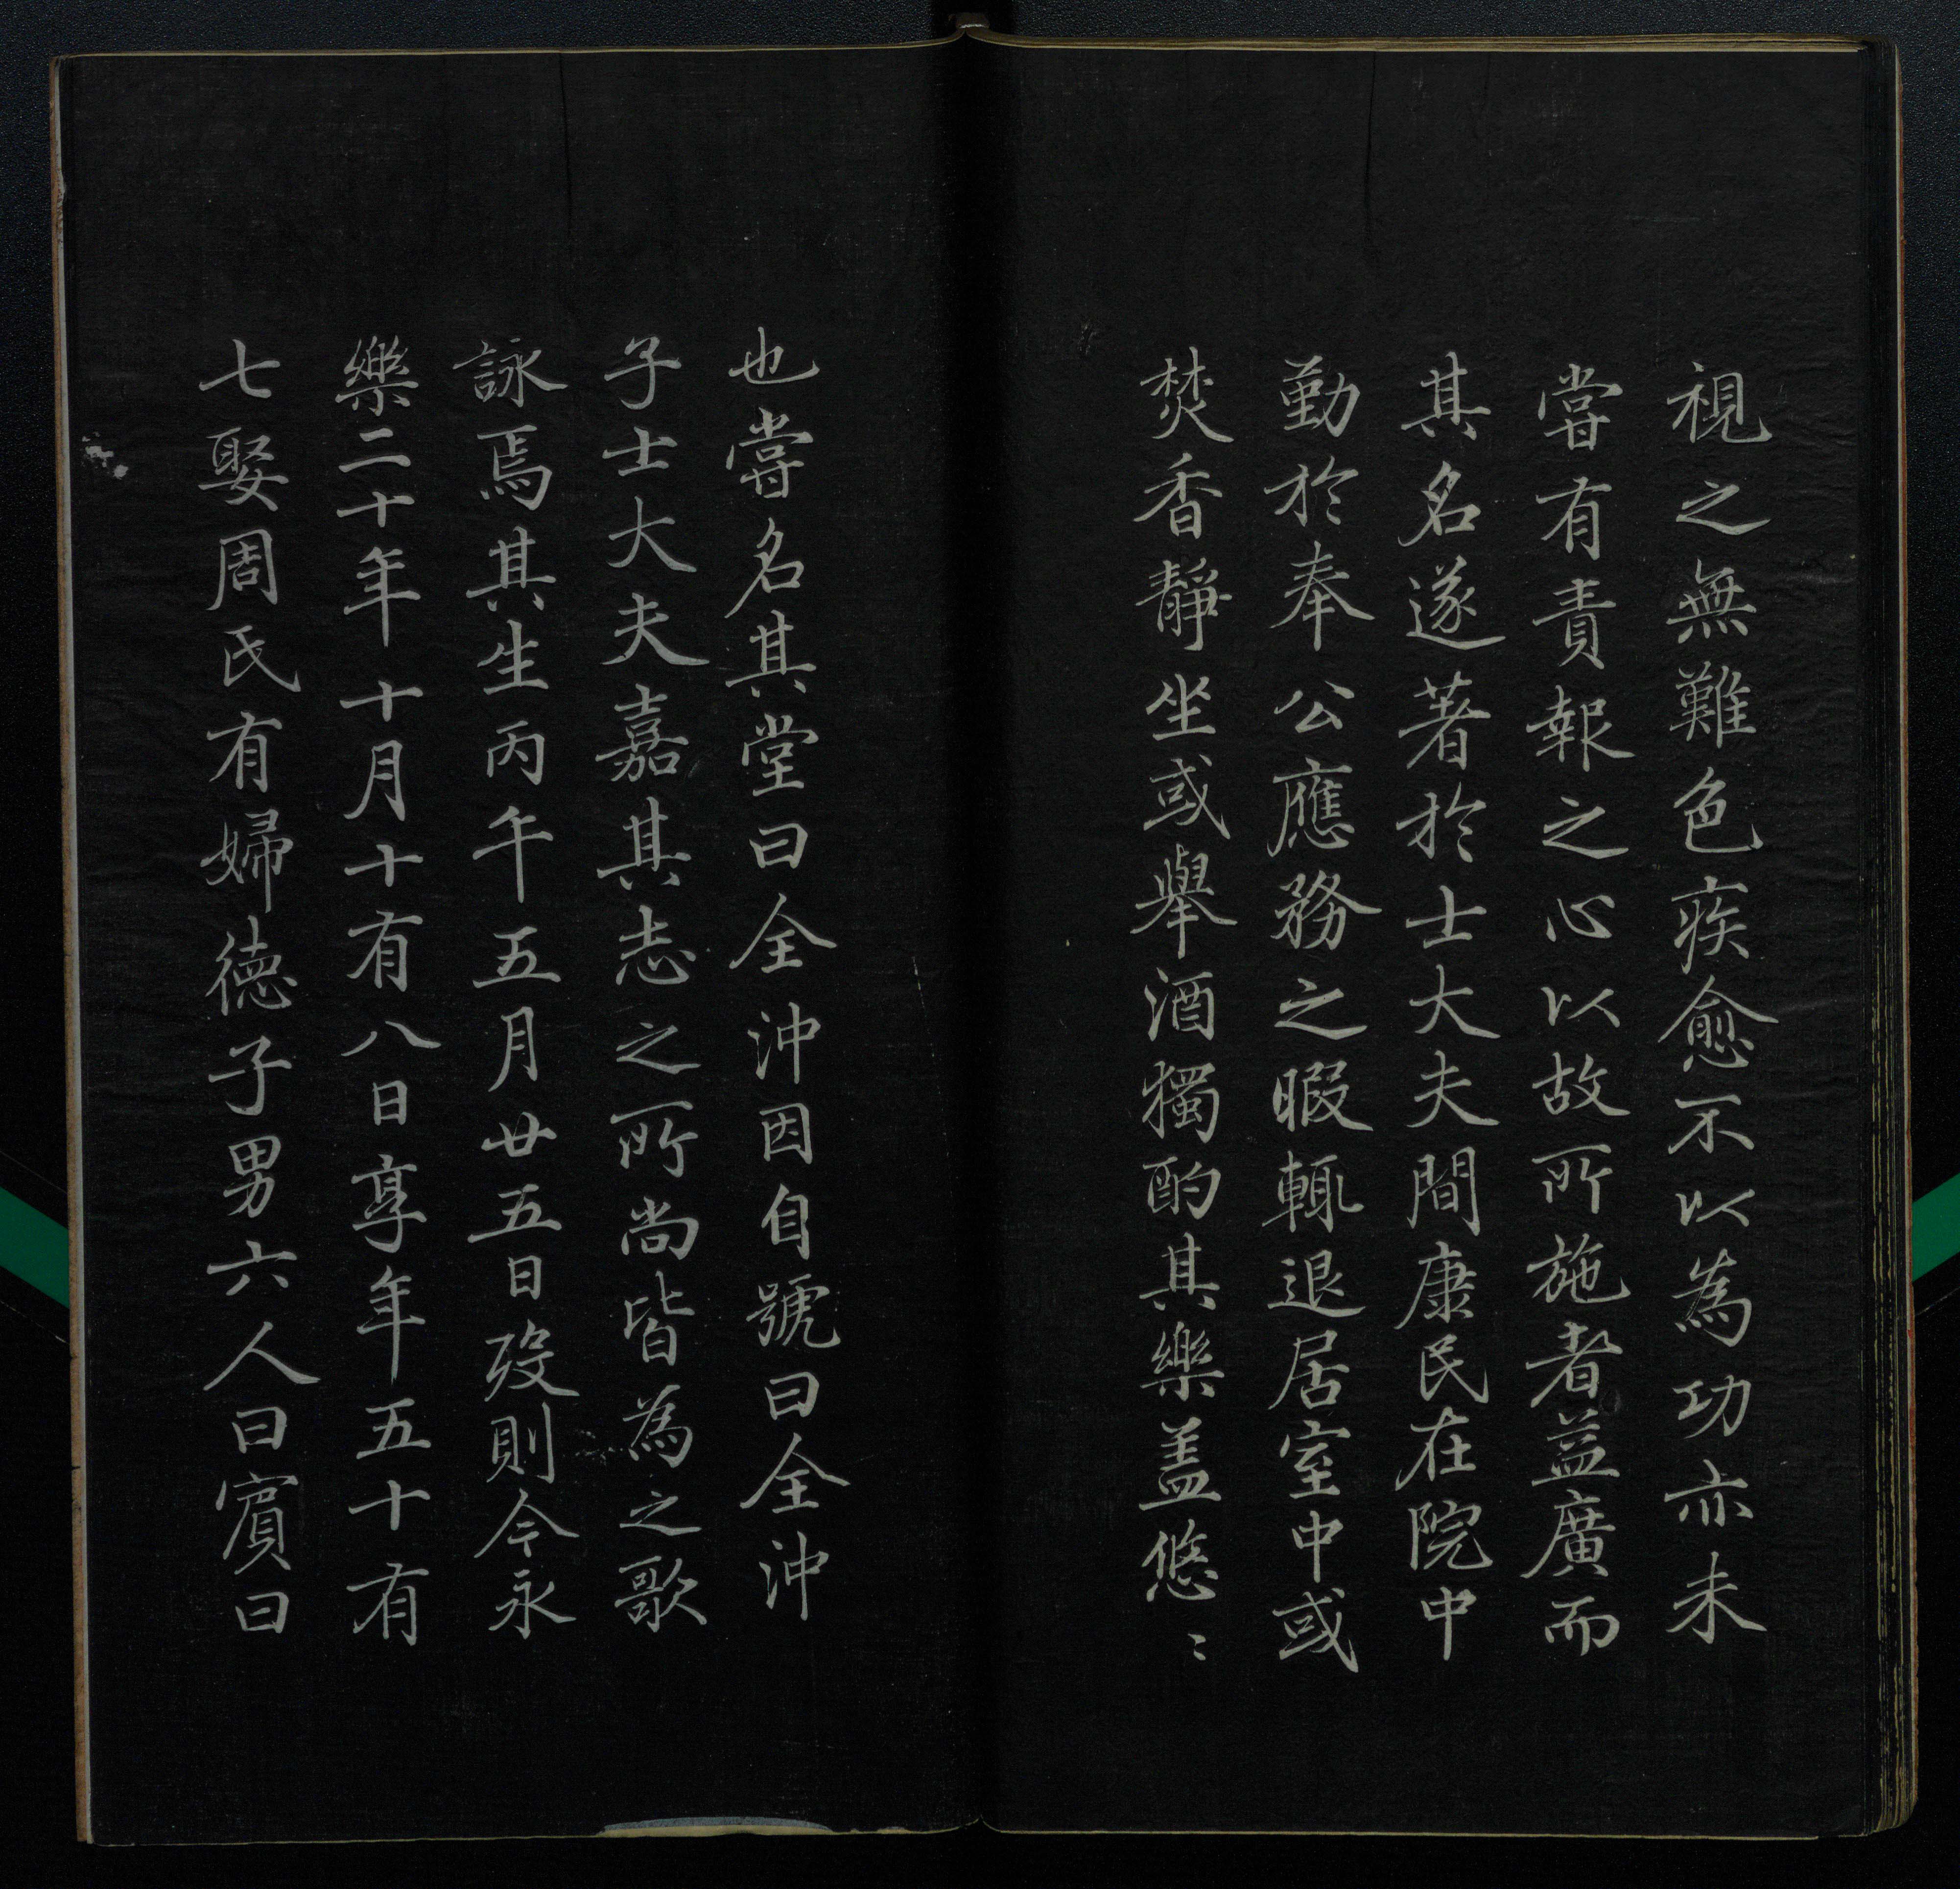 視之無難色疾愈不以為功亦未
嘗有責報之心以故所施者益廣而
其名遂著於士大夫間康民在院中
勤於奉公應務之暇輒退居室中或
焚香靜坐或舉酒獨酌其樂盖悠〻
也嘗名其堂曰全沖因自號曰全沖
子士大夫嘉其志之所尚皆為之歌
詠焉其生丙午五月廿五日歿則今永
樂二十年十月十有八日享年五十有
七娶周氏有婦德子男六人曰賔曰